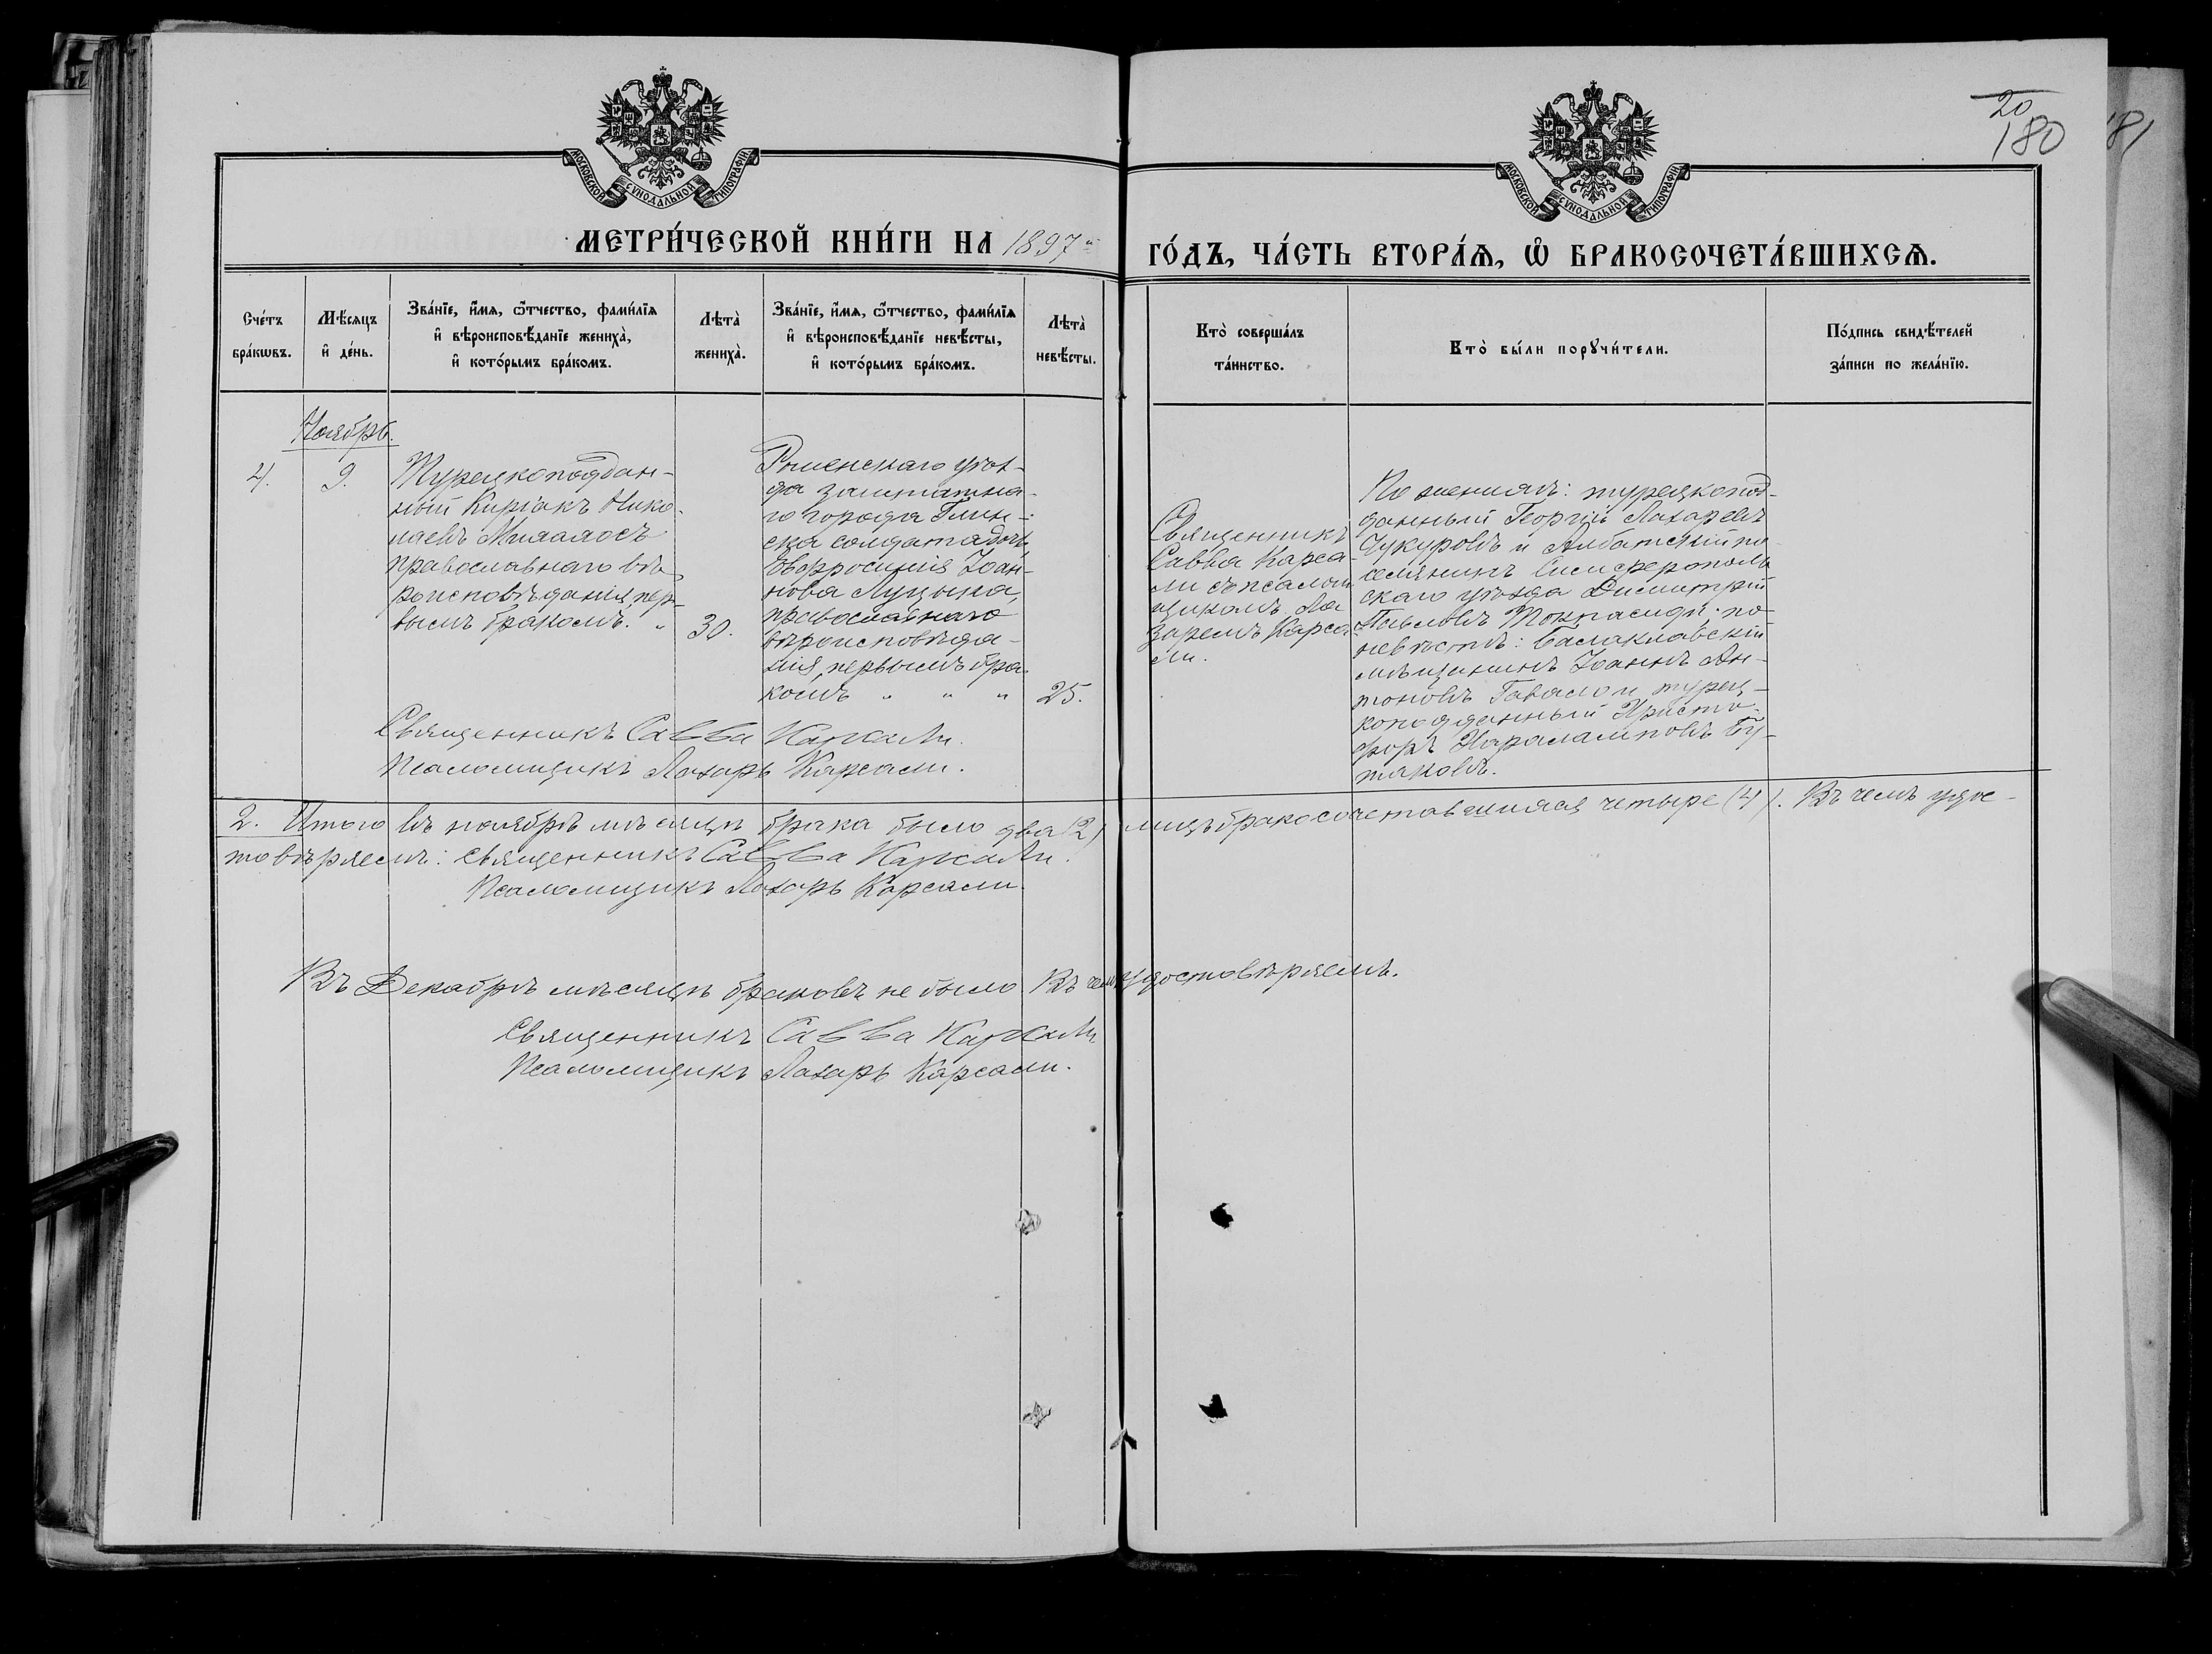 20
180
181
МОСКОВСКОЙ СѴНОДАЛЬНОЙ ТИПОГРАФІИ.
МОСКОВСКОЙ СѴНОДАЛЬНОЙ ТИПОГРАФІИ.
МЕТРИ́ЧЕСКОЙ КНИ́ГИ НА 1897й
ГО́ДЪ, ЧА́СТЬ ВТОРА́Ѧ, Ѡ҆ БРАКОСОЧЕТА́ВШИХСѦ.
Сче́тъ
бра́кѡвъ.
Мѣ́сяцъ
и҆ де́нь.
Зва́нїе, и҆́мѧ, ѻ҆́тчество, фами́лїѧ
и҆ вѣроисповѣ́данїе жениха̀,
и҆ кото́рымъ бра́комъ.
Лѣта̀
жениха̀.
Зва́нїе, и҆́мѧ, ѻ҆́тчество, фами́лїѧ
и҆ вѣроисповѣ́данїе невѣ́сты,
и҆ кото́рымъ бра́комъ.
Лѣта̀
невѣ́сты.
Кто̀ соверша́лъ
та́инство.
Кто̀ бы́ли порꙋчи́тели.
По́дпись свидѣ́телей
за́писи по жела́нїю.
Ноябрь.
4.
9.
Турецкоподдан-
ный Киріакъ Нико-
лаевъ
православнаго вѣ-
роисповѣданія, пер-
вымъ бракомъ. "
30.
Роменскаго уѣз-
да заштатна-
го города Глин-
ска солдатадочь
Евфросинія Іоан-
нова Луцына,
православнаго
вѣроисповѣда-
нія, первымъ бра-
комъ " " "
25.
Священникъ
Савва Карса-
ли съ псалом-
щикомъ Ла-
заремъ Карса-
ли.
По женихѣ: турецкопод-
данный Георгій Лазаревъ
Чукуровъ и Албатскій по-
селянинъ Симферополь-
скаго уѣзда Димитрій
Павловъ Токпасиди; по
невѣстѣ: Балаклавскій
мѣщанинъ Іоаннъ Ан-
тоновъ Гавало и турец-
коподданный Христо-
форъ Хараламповъ Бу-
таковъ.
Священникъ Савва Карсали.
Псаломщикъ Лазарь Карсали.
2. Итого въ ноябрѣ мѣсяцѣ брака было два (2) лицъ бракосочетавшихся четыре (4). Въ чемъ удос-
товѣряемъ: Священникъ Савва Карсали.
Псаломщикъ Лазарь Карсали.
Въ Декабрѣ мѣсяцѣ браковъ не было Въ чемъ удостовѣряемъ.
Священникъ Савва Карсали
Псаломщикъ Лазарь Карсали.